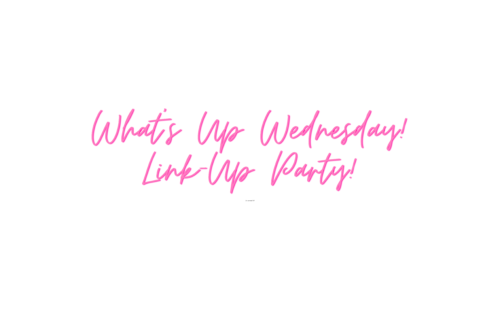 What's Up Wednesday!
Link-Up Party!